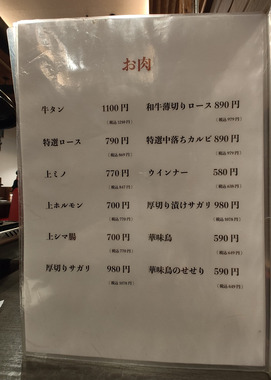 お肉
牛タン 1100円 和牛薄切りロース 890円
(税込1210円) (税込979円)
特選ロース 790円 特選中落ちカルビ 890円
(税込869円) (税込979円)
上ミノ 770円 ウインナー 580円
(税込847円) (税込638円)
上ホルモン 700円 厚切り漬けサガリ 980円
(税込770円) (税込1078円)
上シマ腸 700円 華味鳥 590円
(税込770円) (税込649円)
厚切りサガリ 980円 華味鳥のせせり 590円
(税込1078円) (税込649円)